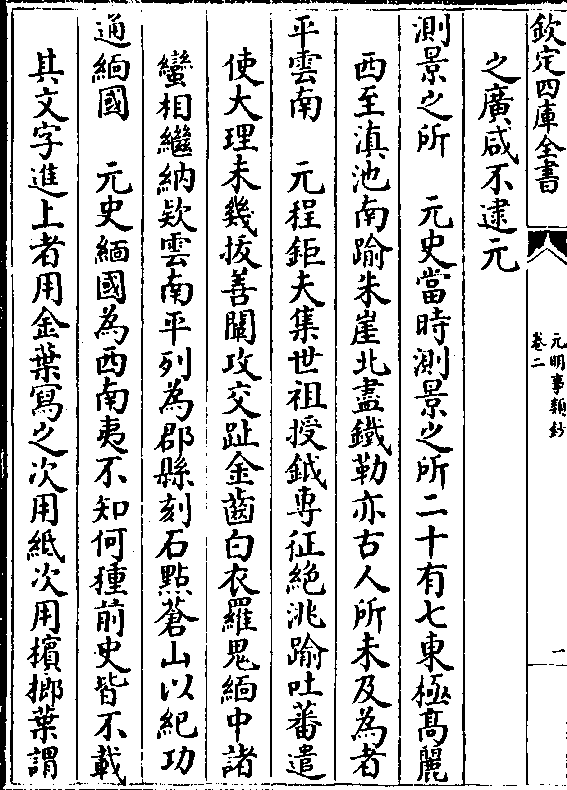 欽定四庫全書
元明事類鈔
卷二
一
之廣咸不逮元
測景之所　元史當時測景之所二十有七東極髙麗
西至滇池南踰朱崖北盡鐵勒亦古人所未及為者
平雲南　元程鉅夫集世祖授鉞専征絶洮踰吐蕃遣
使大理未幾拔善闡攻交趾金齒白衣羅鬼緬中諸
蠻相繼納欵雲南平列為郡縣刻石㸃蒼山以紀功
通緬國　元史緬國為西南夷不知何種前史皆不載
其文字進上者用金葉寫之次用紙次用檳榔葉謂